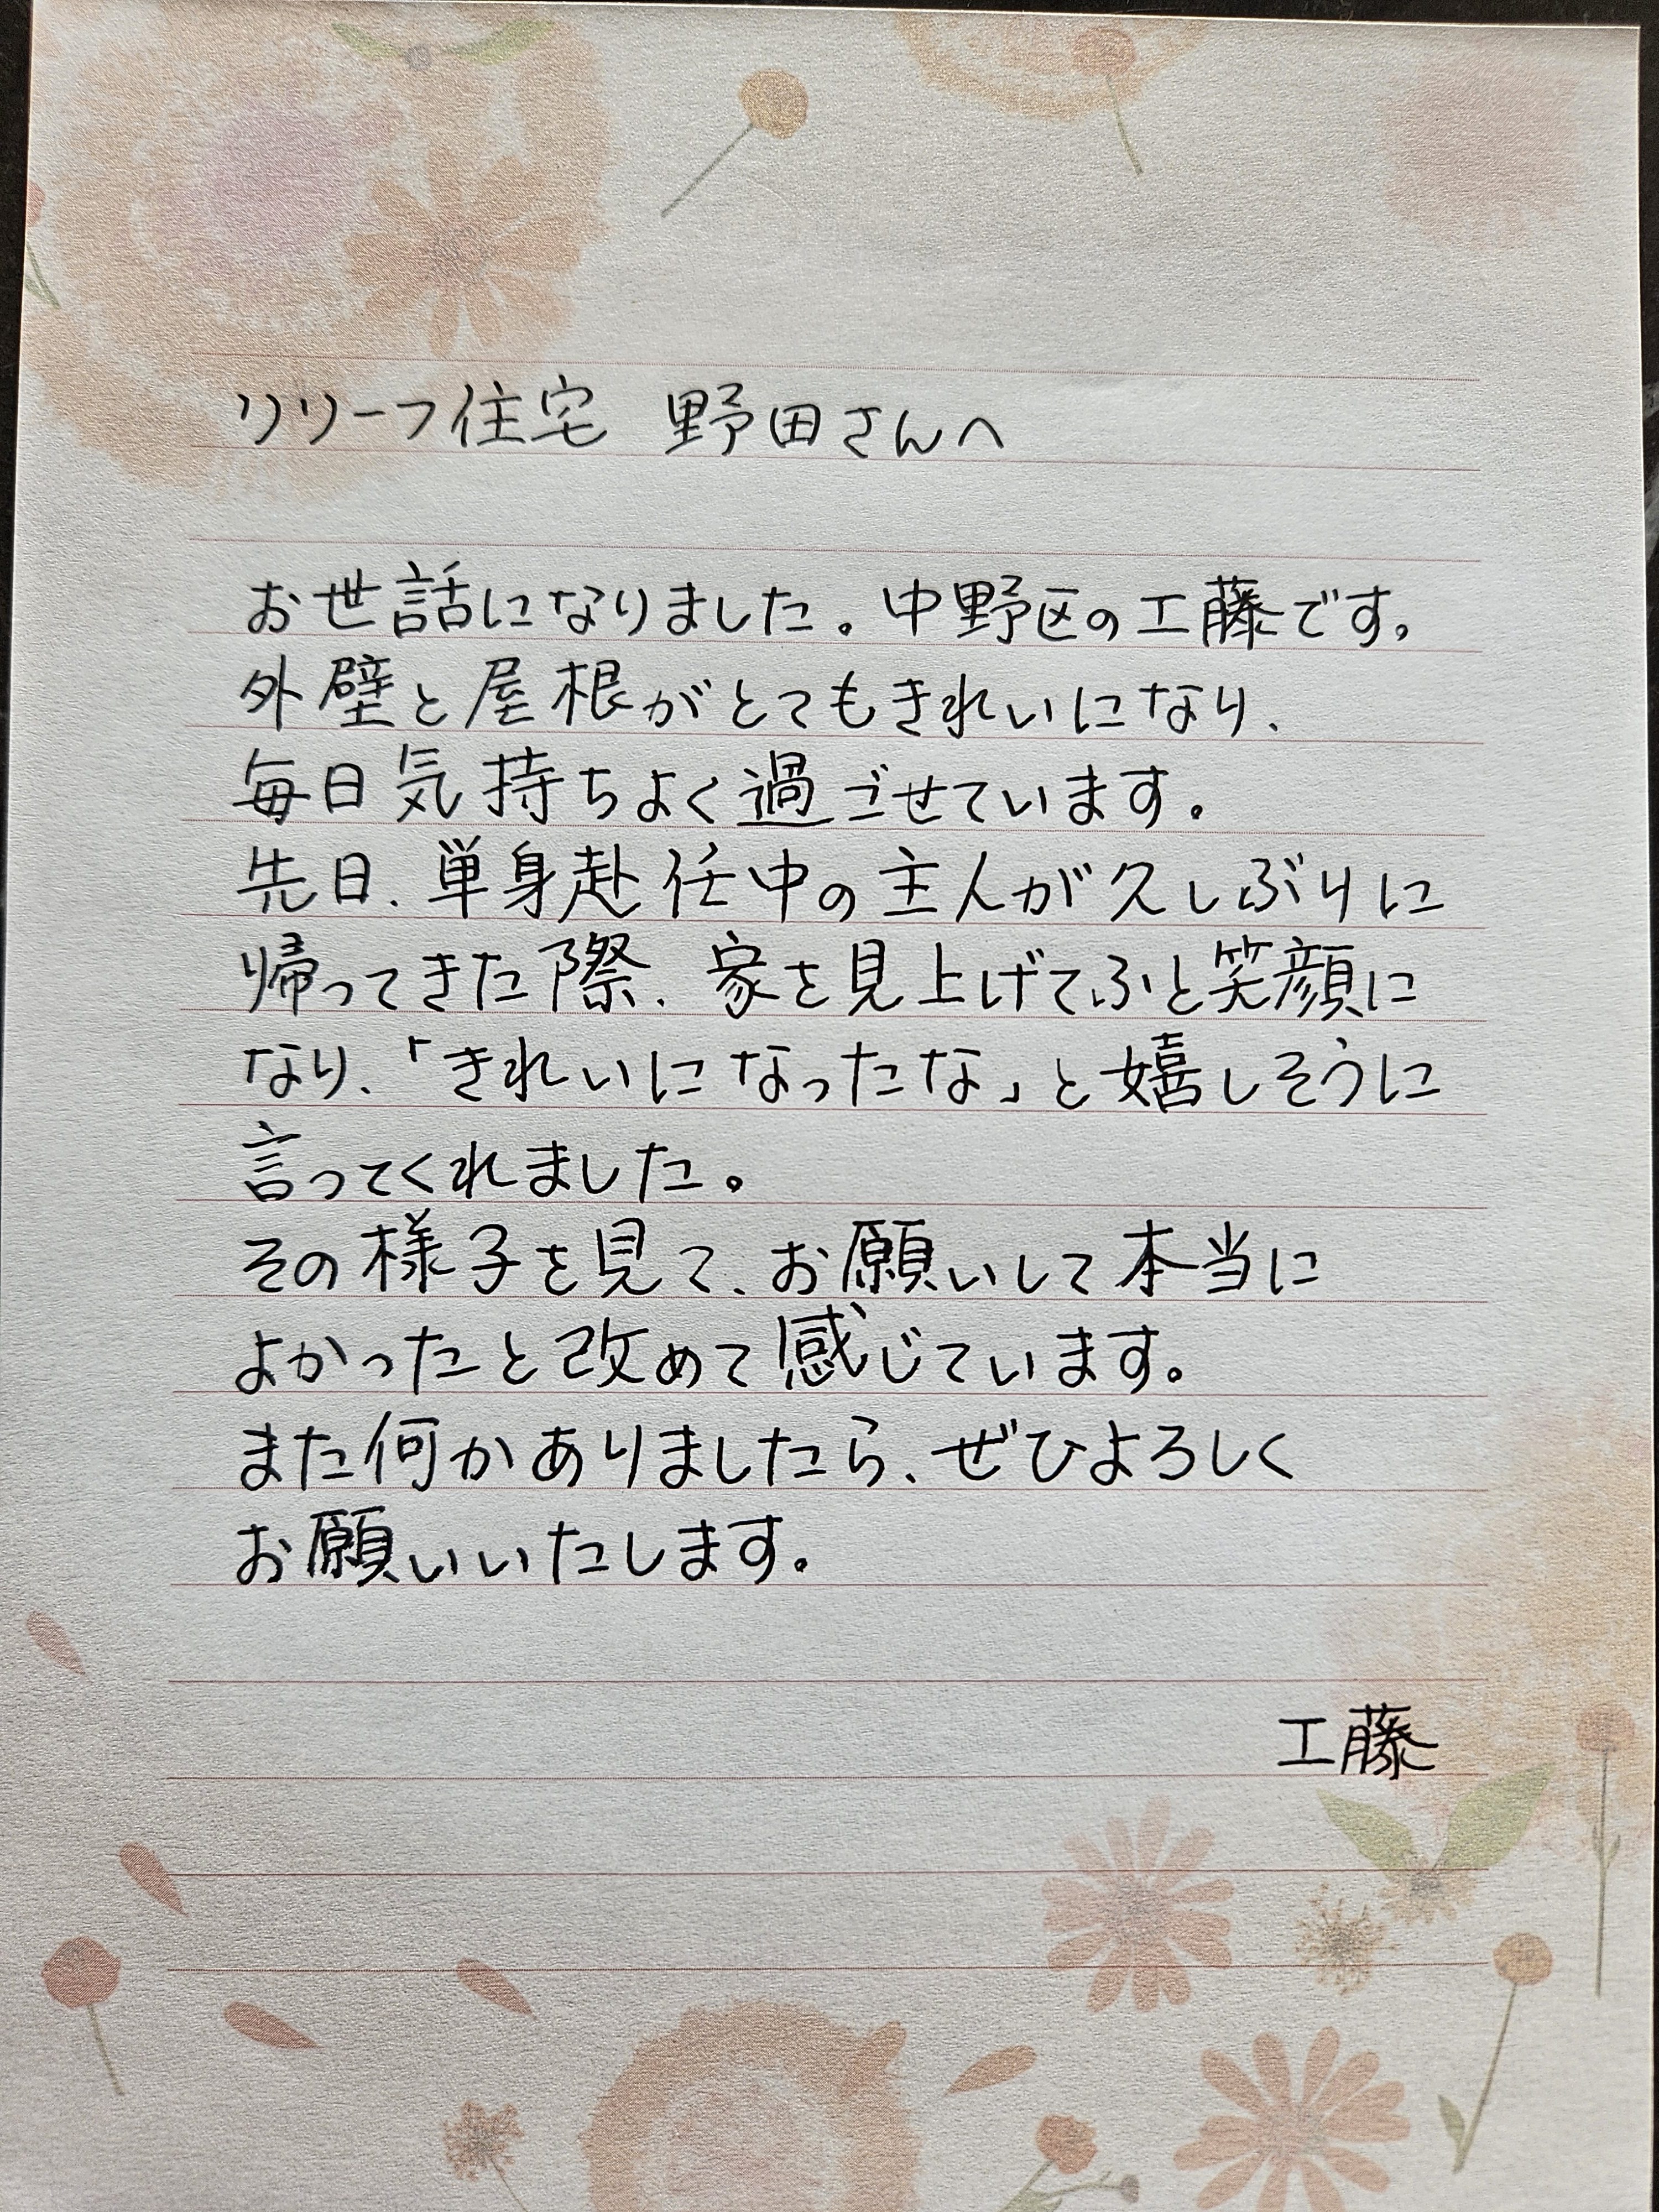 リリーフ住宅 野田さんへ
お世話になりました。中野区の工藤です。
外壁と屋根がとてもきれいになり、
毎日気持ちよく過ごせています。
先日、単身赴任中の主人が久しぶりに
帰ってきた際、家を見上げてふと笑顔に
なり、「きれいになったな」と嬉しそうに
言ってくれました。
その様子を見て、お願いして本当に
よかったと改めて感じています。
また何かありましたら、ぜひよろしく
お願いいたします。
工藤